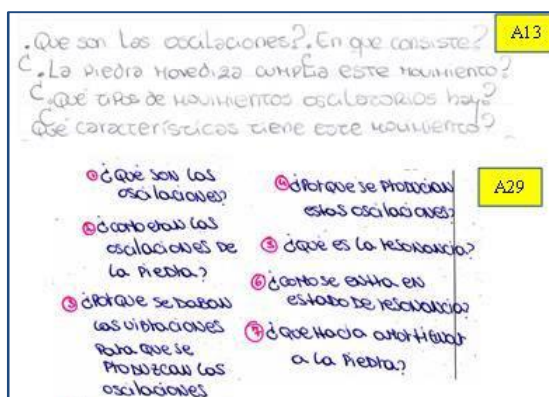 .Que son las oscilaciones?. En que consiste?
A13
¿.La piedra movediza cumplía este movimiento?
¿.Qué tipos de movimientos oscilatorios hay?
Qué características tiene este movimiento?
A29
① ¿Qué son las
oscilaciones?
② ¿como eran las
oscilaciones de
la piedra?
③ ¿Porque se daban
las vibraciones
para que se
produzcan las
oscilaciones
④ ¿Porque se producian
estas oscilaciones?
⑤ ¿Qué es la resonancia?
⑥ ¿como se entra en
estado de resonancia?
⑦ ¿Que hacia amortiguar
a la piedra?